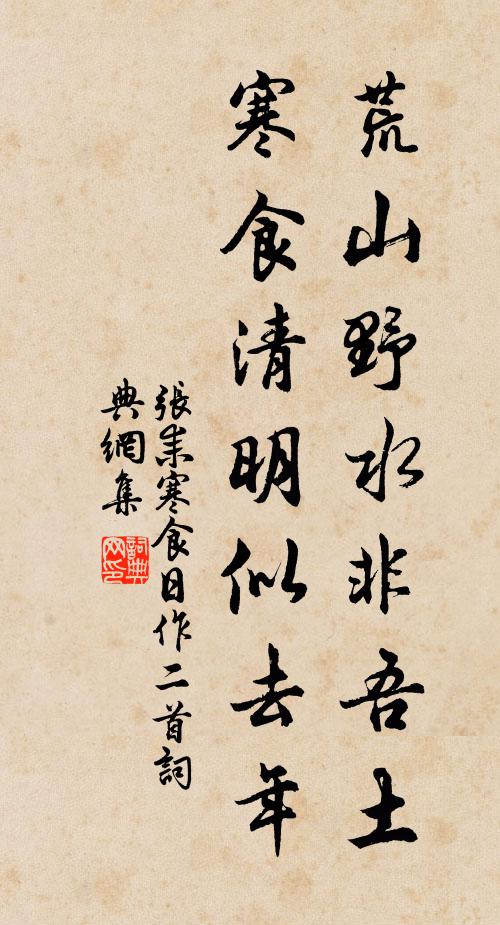 荒山野水非吾土
寒食清明似去年
張耒寒食日作二首詞
典網集
詞典
网印